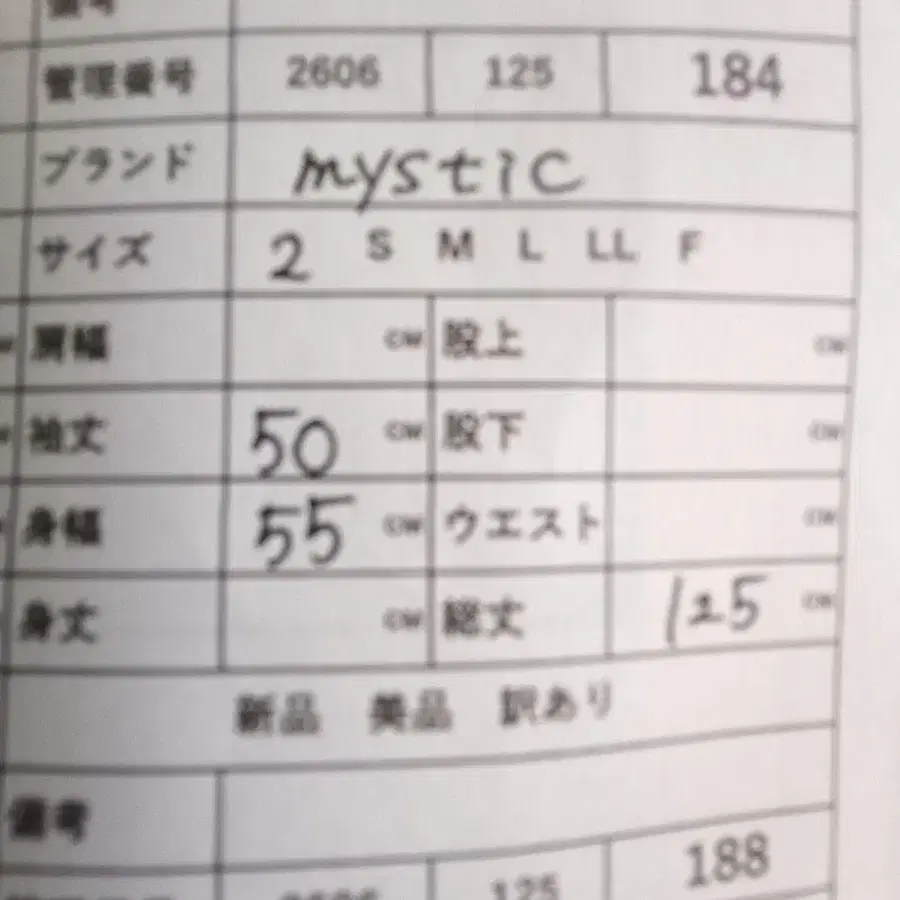 備考
管理番号 2606 125 184
ブランド mystic
サイズ 2 S M L LL F
肩幅 cm 股上 cm
袖丈 50 cm 股下 cm
身幅 55 cm ウエスト cm
身丈 cm 総丈 125 cm
新品 美品 訳あり
備考
125 188